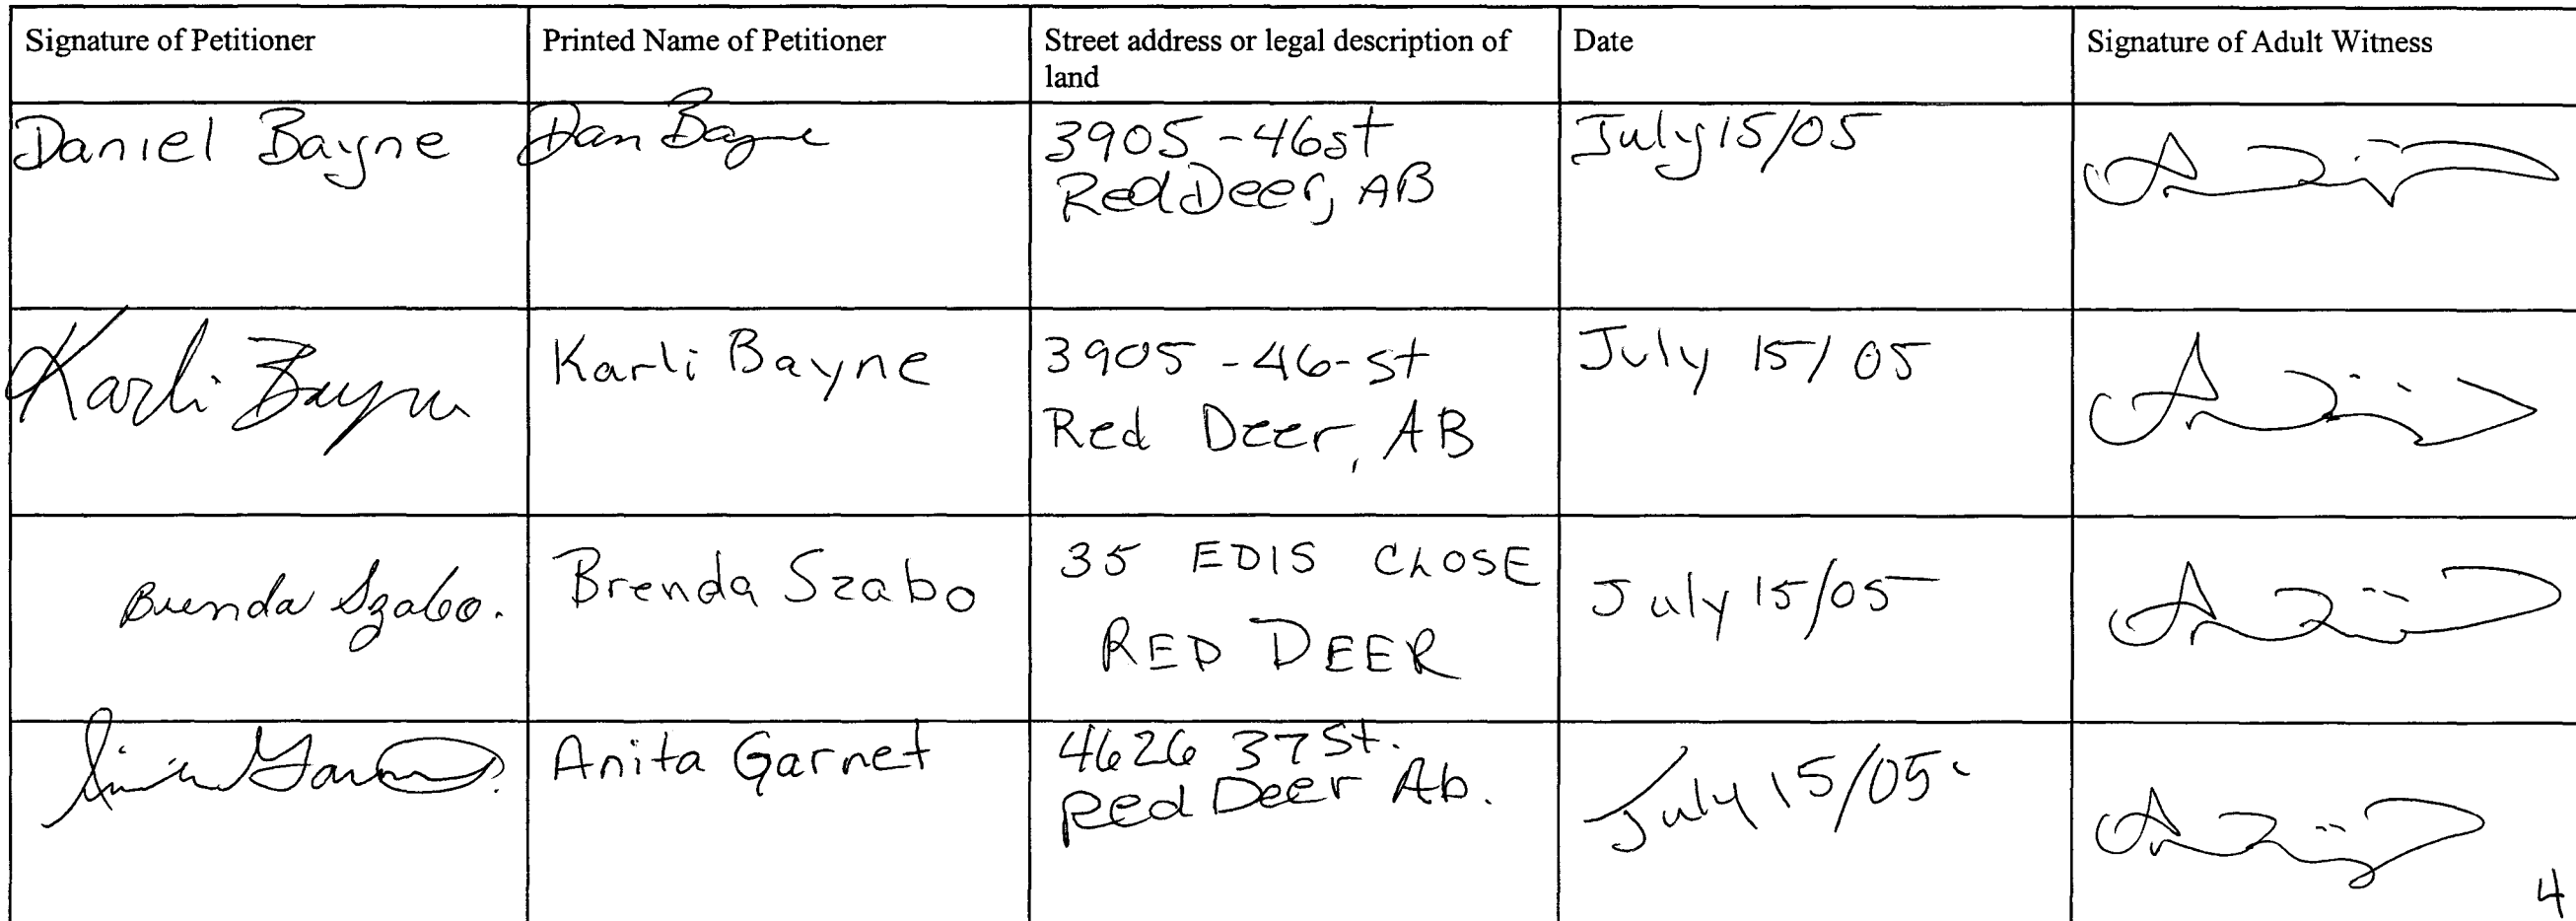 Signature of Petitioner
Printed Name of Petitioner
Street address or legal description of
land
Date
Signature of Adult Witness
Daniel Bayne
Dan Bayne
3905 - 46 st
Red Deer, AB
July 15/05
Karli Bayne
Karli Bayne
3905 - 46 - st
Red Deer, AB
July 15/05
Brenda Szabo.
Brenda Szabo
35 EDIS CLOSE
RED DEER
July 15/05
Anita Garnet
4626 37 St.
Red Deer Ab.
July 15/05.
4